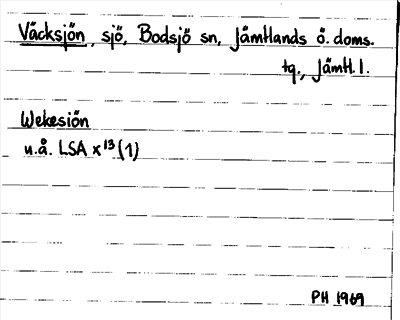 Väcksjön, sjö, Bodsjö sn, Jämtlands ö. doms.
tg., Jämtl. l.
Wekesiön
u.å. LSA x¹³(1)
PH 1969